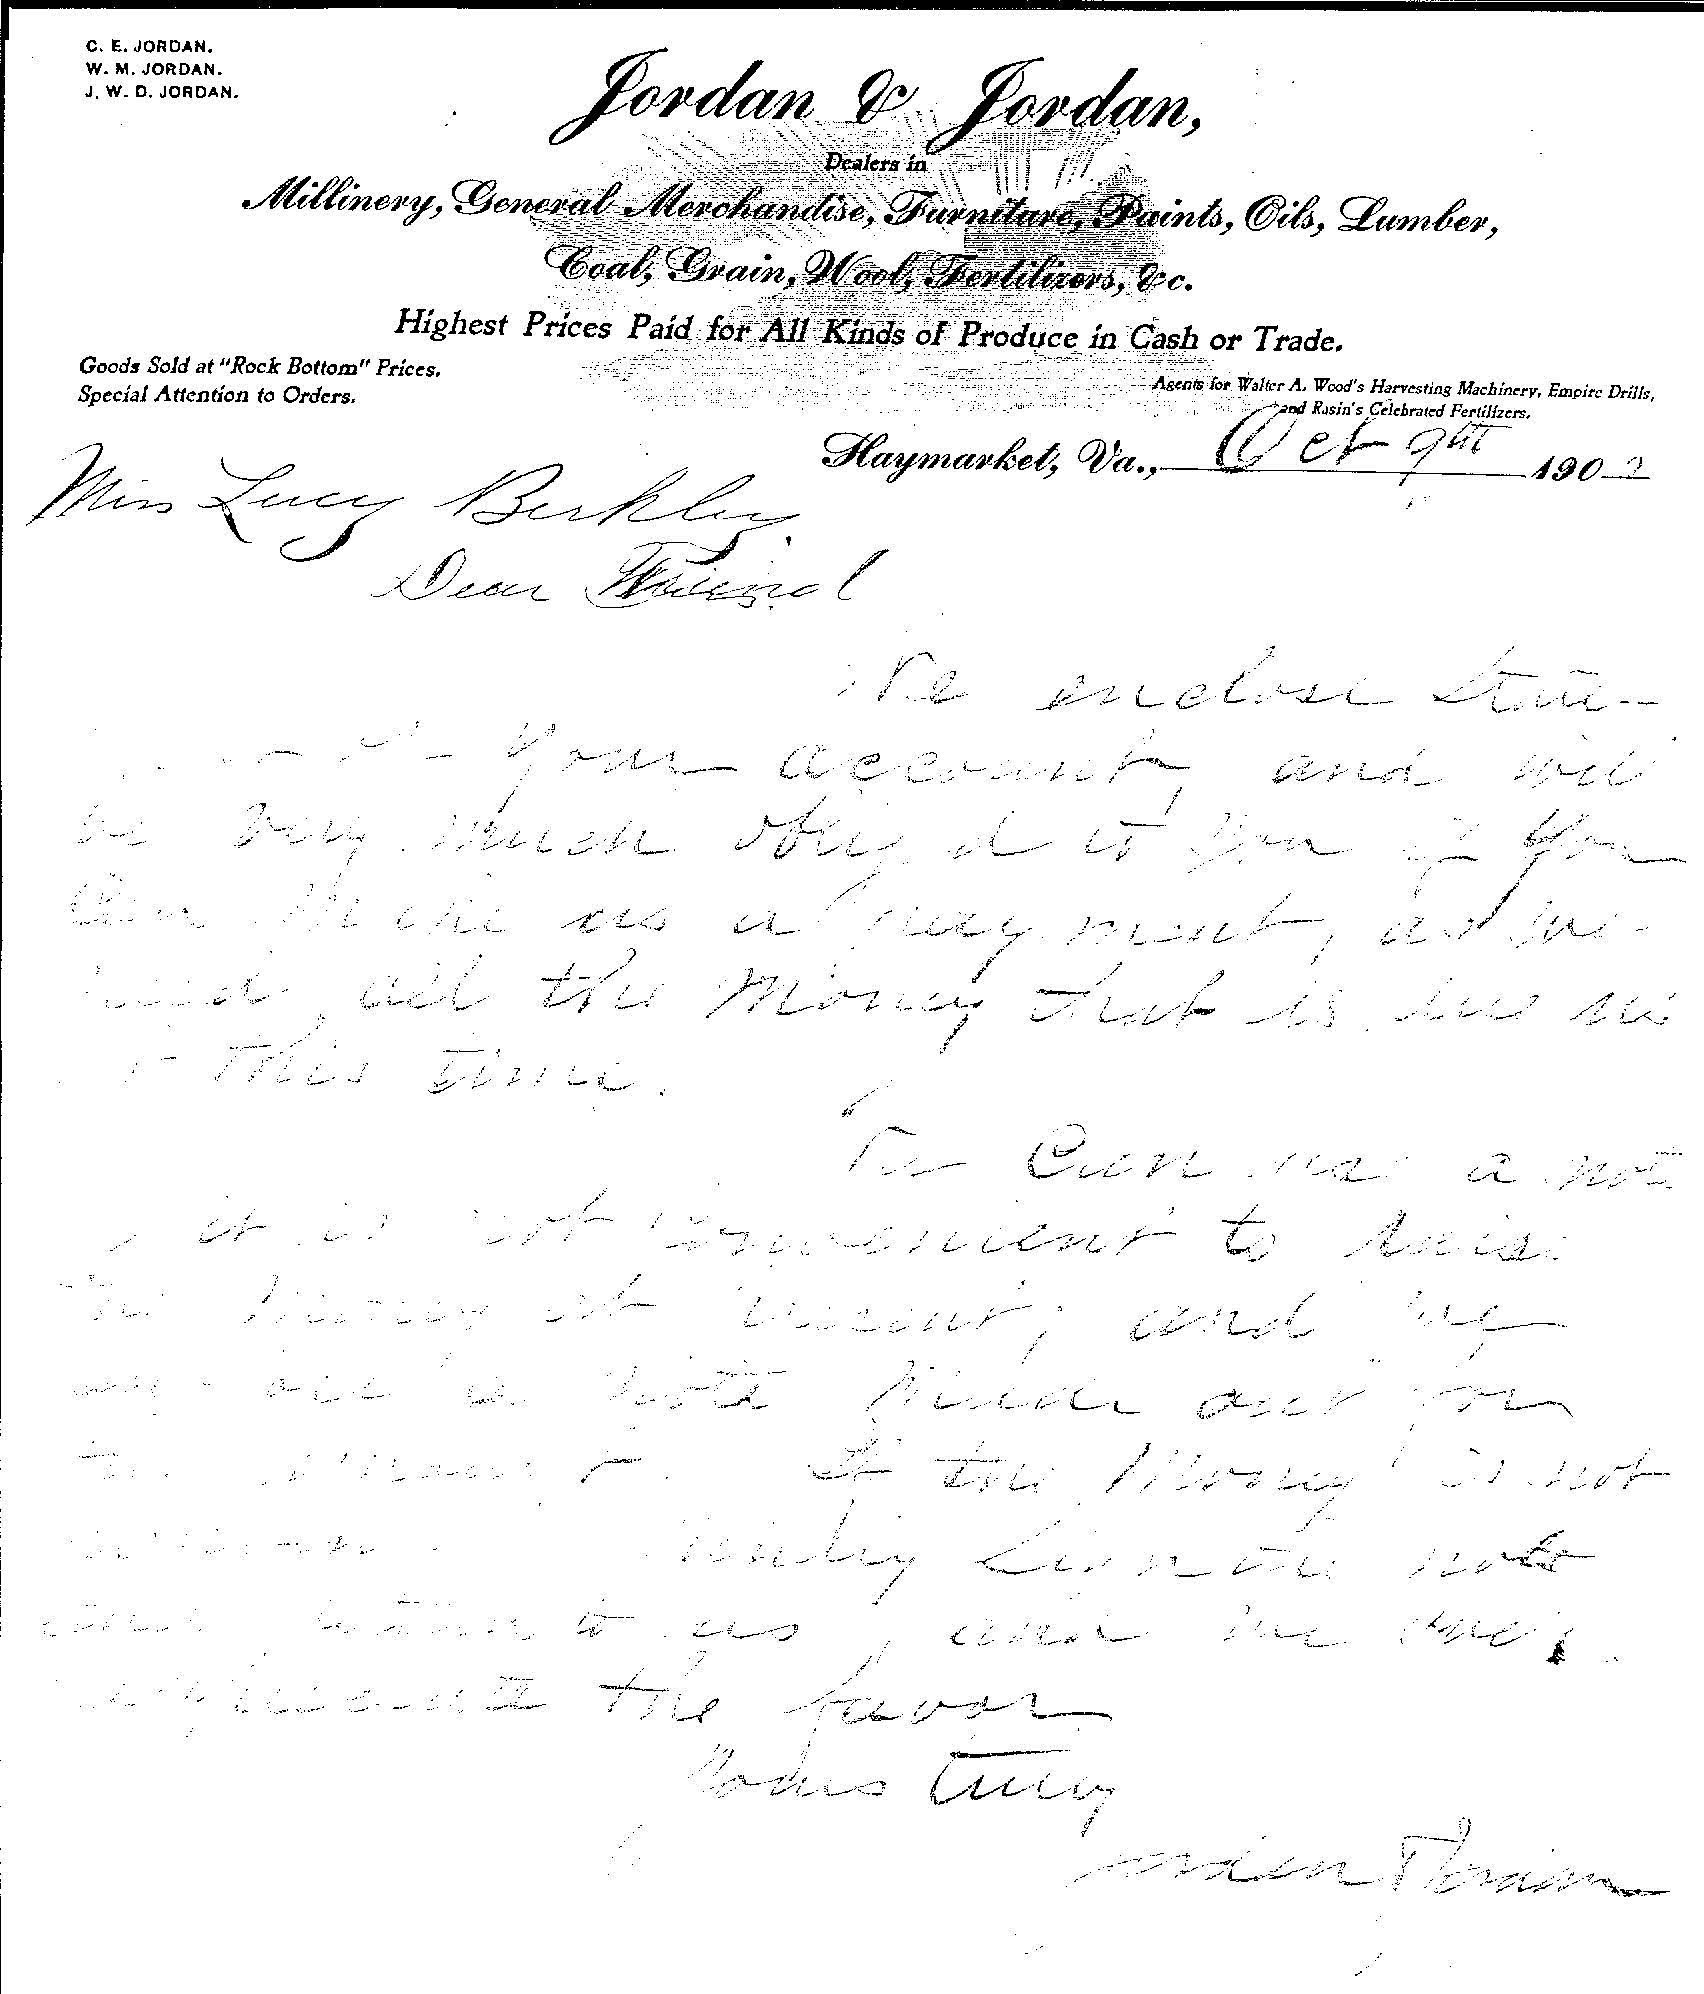 C. E. JORDAN.
W. M. JORDAN.
J. W. D. JORDAN.
Jordan & Jordan,
Dealers in
Millinery, General Merchandise, Furniture, Paints, Oils, Lumber,
Coal, Grain, Wool, Fertilizers, &c.
Highest Prices Paid for All Kinds of Produce in Cash or Trade.
Goods Sold at "Rock Bottom" Prices.
Special Attention to Orders.
Agents for Walter A. Wood's Harvesting Machinery, Empire Drills,
and Rasin's Celebrated Fertilizers.
Haymarket, Va., Oct 9th 190
Miss Lucy Berkley
Dear Friend
We enclose State-
your account, and will
be very much oblig'd to you if you
Can Make us a payment, as we
need all the Money that is due us
this time.
We Can use a note
it is not convenient to raise
the Money at present, and we
a note made out for
the If the Money is not
Kindly sign the note
and return to us, and we will
appreciate the favor
Yours Truly
Jordan & Jordan